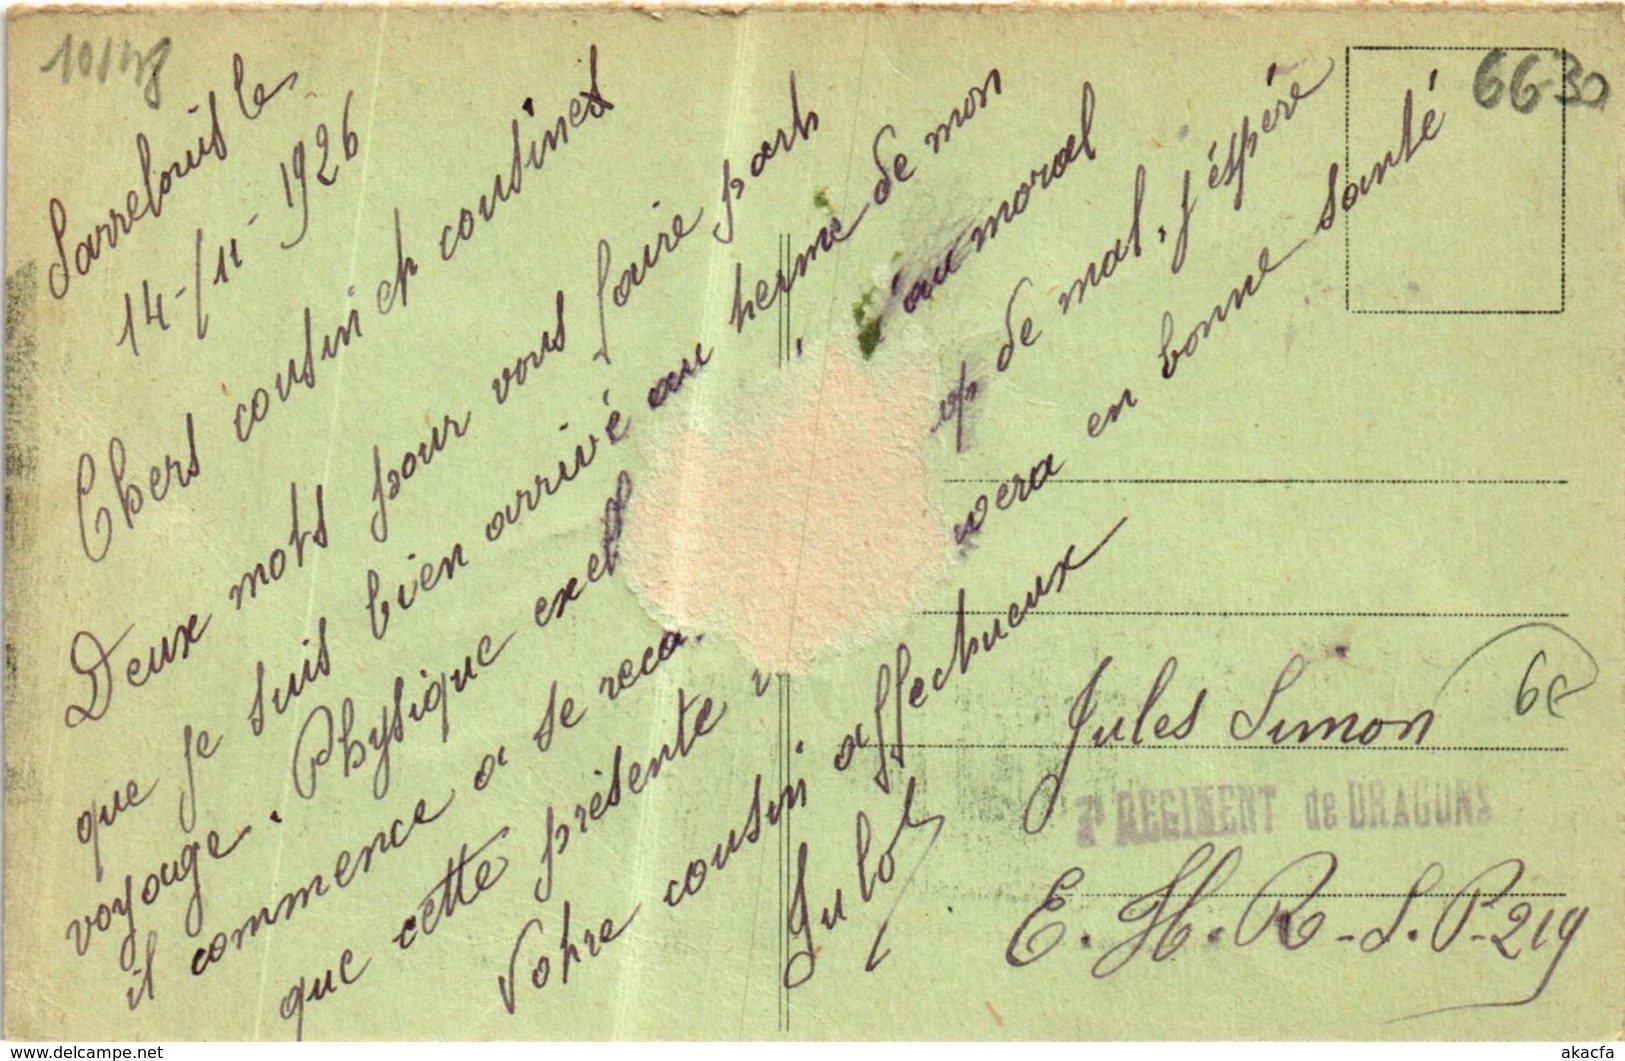 10148
6630
Sarrelouis le
14-/11-1926
Chers cousin et cousines
Deux mots pour vous faire part
que je suis bien arrivé au terme de mon
voyouge. Physique exel au moral
il commence a se reca p de mal, j'éspére
que cette présente vera en bonne santé
Votre cousin affectueux
Julot
Jules Simon
6e
REGIMENT de DRAGONS
E. H. R - S. P - 219
akacfa
delcampe.net